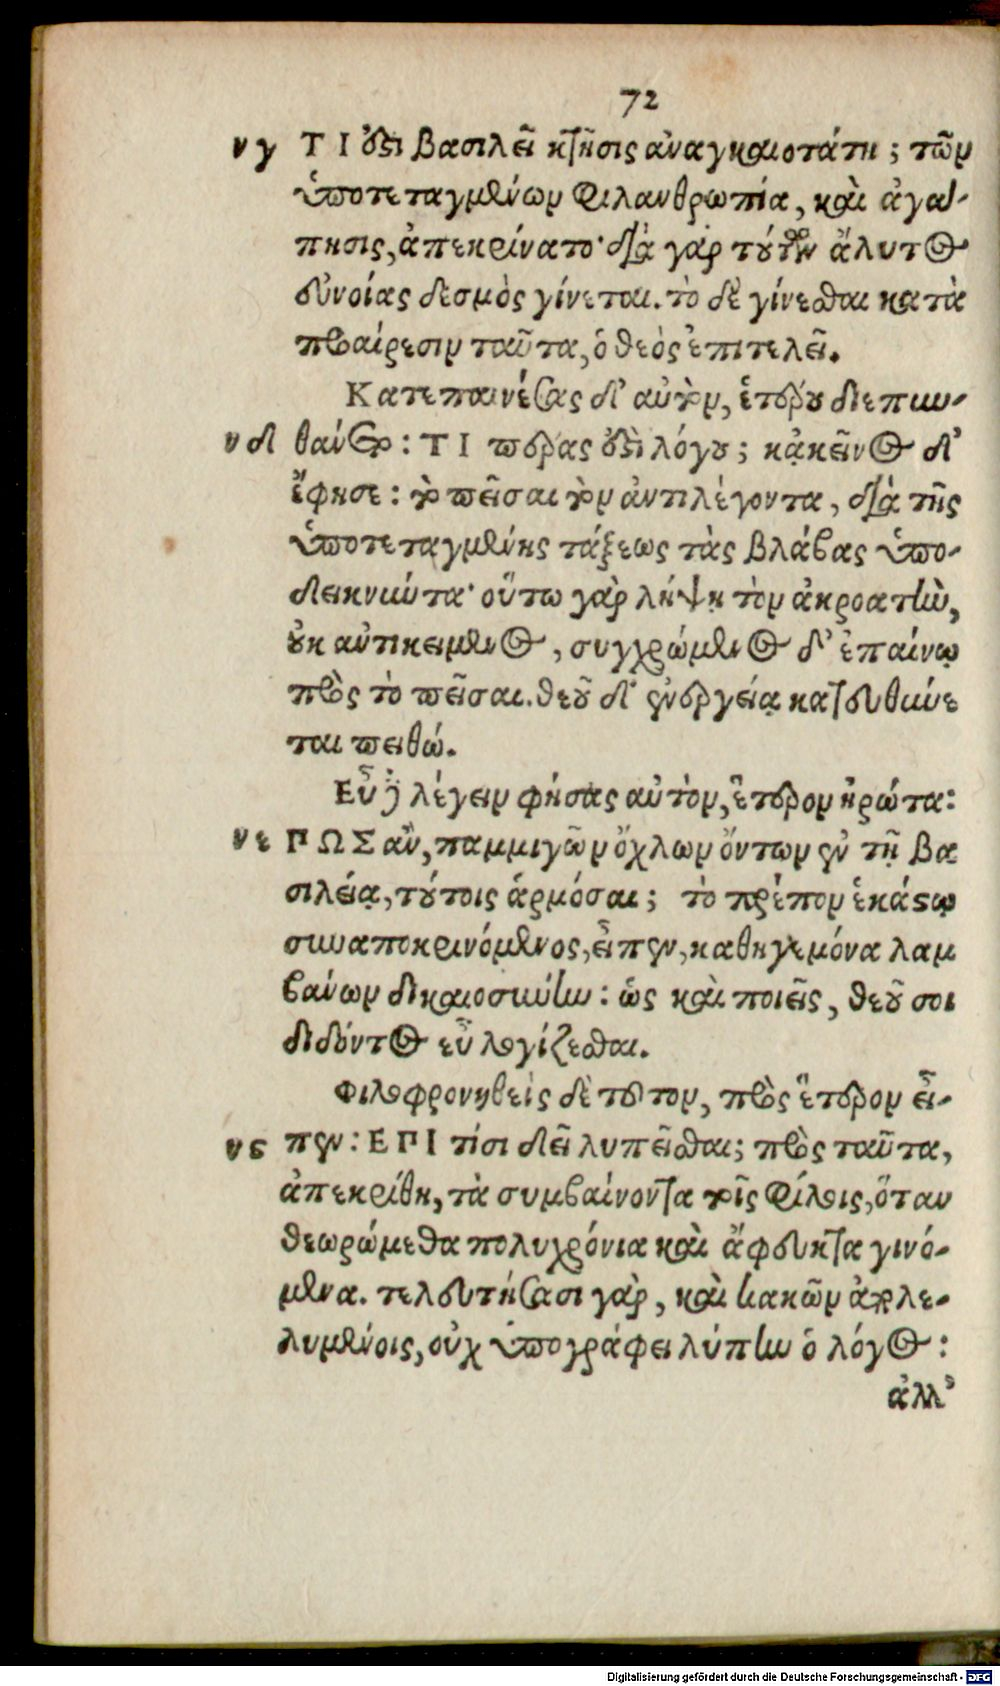 72
νγ ΤΙ ἐστι βασιλεῖ κτῆσις ἀναγκαιοτάτη; τῶν
ὑποτεταγμένων φιλανθρωπία, καὶ ἀγά-
πησις, ἀπεκρίνατο· διὰ γὰρ τούτων ἄλυτος
εὐνοίας δεσμὸς γίνεται. τὸ δὲ γίνεσθαι κατὰ
προαίρεσιν ταῦτα, ὁ θεὸς ἐπιτελεῖ.
Κατεπαινέσας δ' αὐτὸν, ἑτέρου διεπυν-
νδ θάνετο: ΤΙ πέρας ἐστὶ λόγου; κᾀκεῖνος δ'
ἔφησε: τὸ πεῖσαι τὸν ἀντιλέγοντα, διὰ τῆς
ὑποτεταγμένης τάξεως τὰς βλάβας ὑπο-
δεικνύντα· οὕτω γὰρ λήψῃ τὸν ἀκροατὴν,
οὐκ αὐτικείμενος, συγχρώμενος δ' ἐπαίνῳ
πρὸς τὸ πεῖσαι. θεοῦ δ' ἐνεργείᾳ κατευθύνε
ται πειθώ.
Εὖ δὲ λέγειν φήσας αὐτὸν, ἕτερον ἠρώτα:
νε ΠΩΣ ἂν, παμμιγῶν ὄχλων ὄντων ἐν τῇ βα
σιλείᾳ, τούτοις ἁρμόσαι; τὸ πρέπον ἑκάστῳ
συναποκρινόμενος, εἶπεν, καθηγεμόνα λαμ
βάνων δικαιοσύνην: ὡς καὶ ποιεῖς, θεοῦ σοι
διδόντος εὖ λογίζεσθαι.
Φιλοφρονηθεὶς δὲ τοῦτον, πρὸς ἕτερον εἶ-
νϛ πεν: ΕΠΙ τίσι δεῖ λυπεῖσθαι; πρὸς ταῦτα,
ἀπεκρίθη, τὰ συμβαίνοντα τοῖς φίλοις, ὅταν
θεωρώμεθα πολυχρόνια καὶ ἄφευκτα γινό-
μενα. τελευτήσασι γὰρ, καὶ κακῶν ἀπολε-
λυμένοις, οὐχ ὑπογράφει λύπην ὁ λόγος:
ἀλλ'
Digitalisierung gefördert durch die Deutsche Forschungsgemeinschaft - DFG